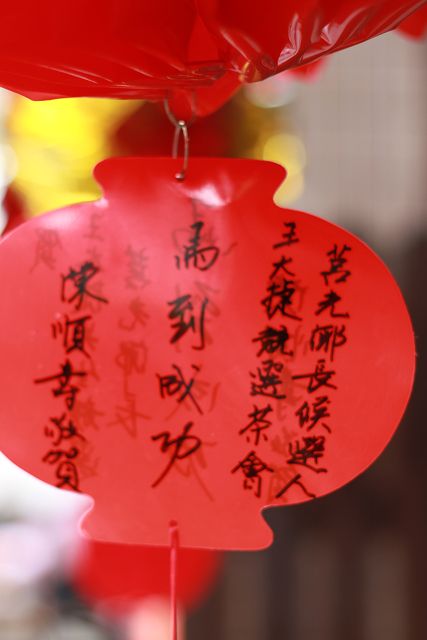 莒光鄰長候選人
王大捷競選茶會
馬到成功
陳順幸敬賀